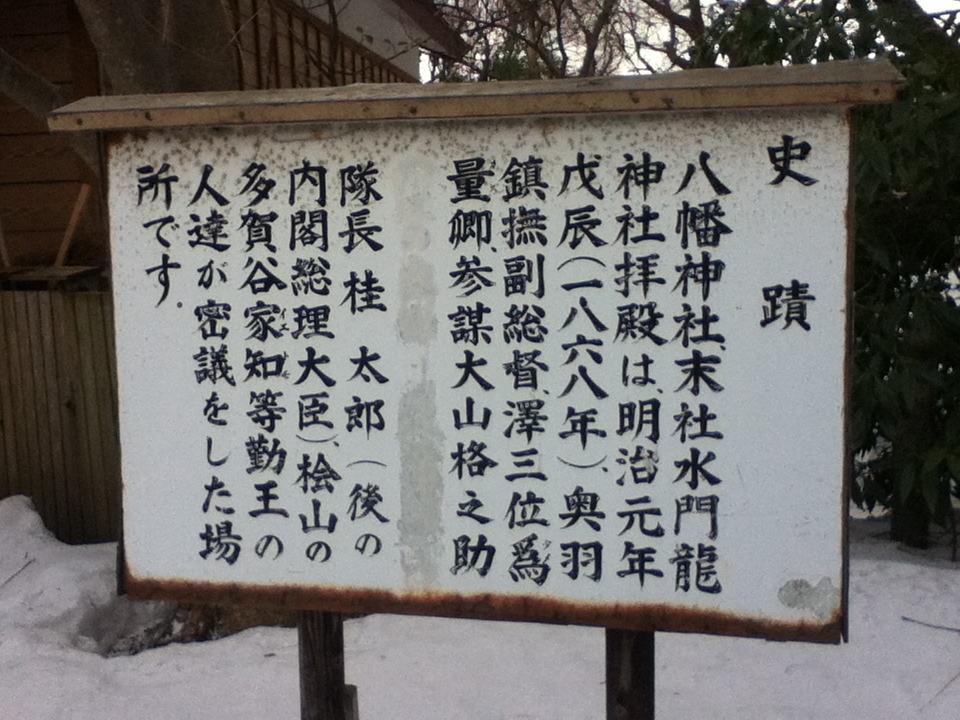 史蹟
八幡神社、末社水門龍
神社拝殿は、明治元年
戊辰(一八六八年)、奥羽
鎮撫副総督、澤三位爲
量卿、参謀大山格之助
隊長 桂 太郎(後の
内閣総理大臣)、桧山の
多賀谷家知等勤王の
人達が密議をした場
所です.